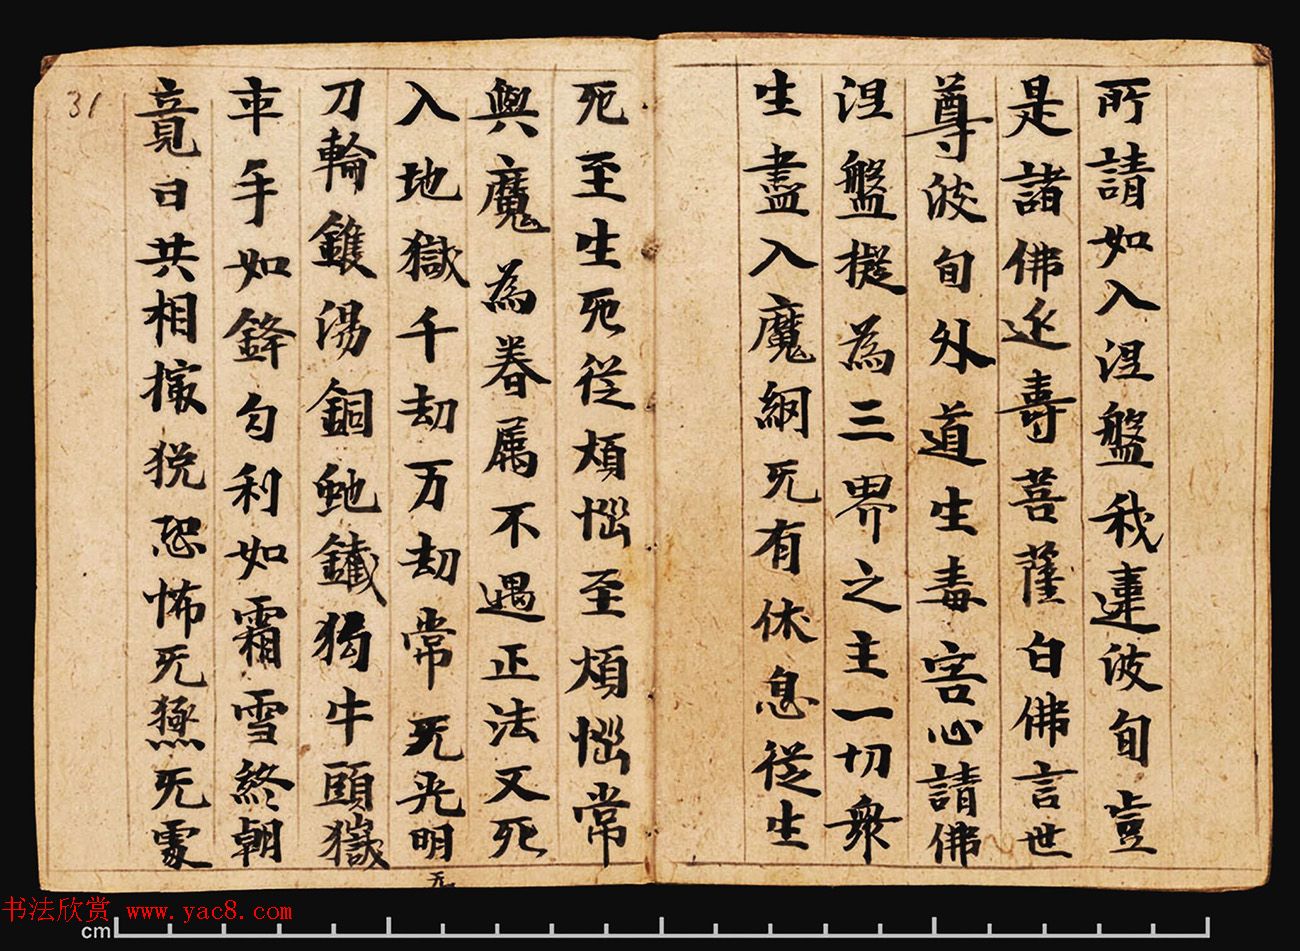 所請如入涅盤我違波旬豈
是諸佛延壽菩薩白佛言世
尊波旬外道生毒害心請佛
涅盤擬為三界之主一切衆
生盡入魔網无有休息從生
死至生死從煩惱至煩惱常
與魔為眷属不遇正法又死
入地獄千劫万劫常无光明
无
刀輪鑊湯銅虵鐵狗牛頭獄
卒手如鋒勾利如霜雪終朝
竟日共相恐怖无无處
31
书法欣赏 www.yac8.com
cm